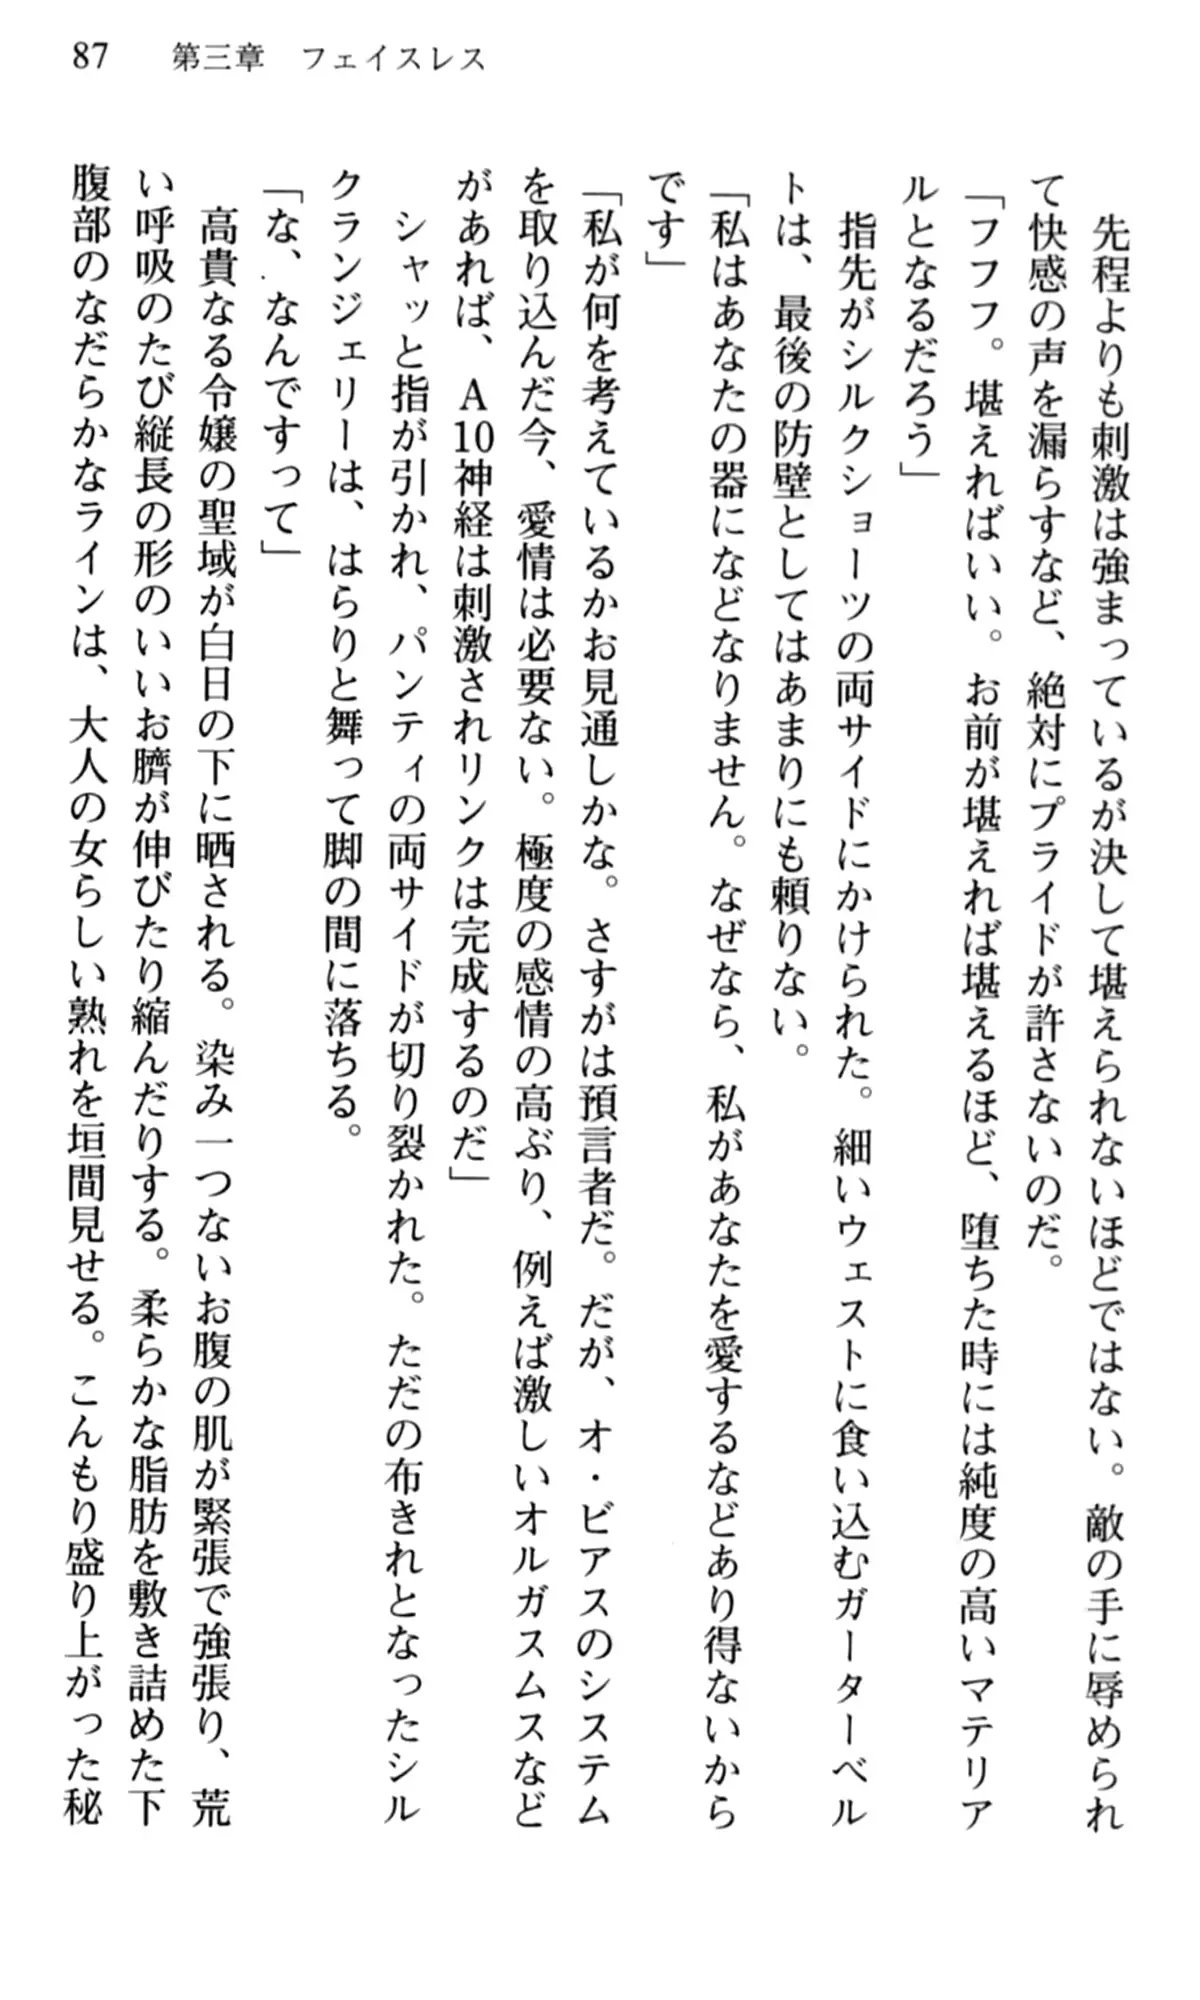 87　第三章　フェイスレス
　先程よりも刺激は強まっているが決して堪えられないほどではない。敵の手に辱められ
て快感の声を漏らすなど、絶対にプライドが許さないのだ。
「フフフ。堪えればいい。お前が堪えれば堪えるほど、堕ちた時には純度の高いマテリア
ルとなるだろう」
　指先がシルクショーツの両サイドにかけられた。細いウェストに食い込むガーターベル
トは、最後の防壁としてはあまりにも頼りない。
「私はあなたの器になどなりません。なぜなら、私があなたを愛するなどあり得ないから
です」
「私が何を考えているかお見通しかな。さすがは預言者だ。だが、オ・ビアスのシステム
を取り込んだ今、愛情は必要ない。極度の感情の高ぶり、例えば激しいオルガスムスなど
があれば、A10神経は刺激されリンクは完成するのだ」
　シャッと指が引かれ、パンティの両サイドが切り裂かれた。ただの布きれとなったシル
クランジェリーは、はらりと舞って脚の間に落ちる。
「な、なんですって」
　高貴なる令嬢の聖域が白日の下に晒される。染み一つないお腹の肌が緊張で強張り、荒
い呼吸のたび縦長の形のいいお臍が伸びたり縮んだりする。柔らかな脂肪を敷き詰めた下
腹部のなだらかなラインは、大人の女らしい熟れを垣間見せる。こんもり盛り上がった秘